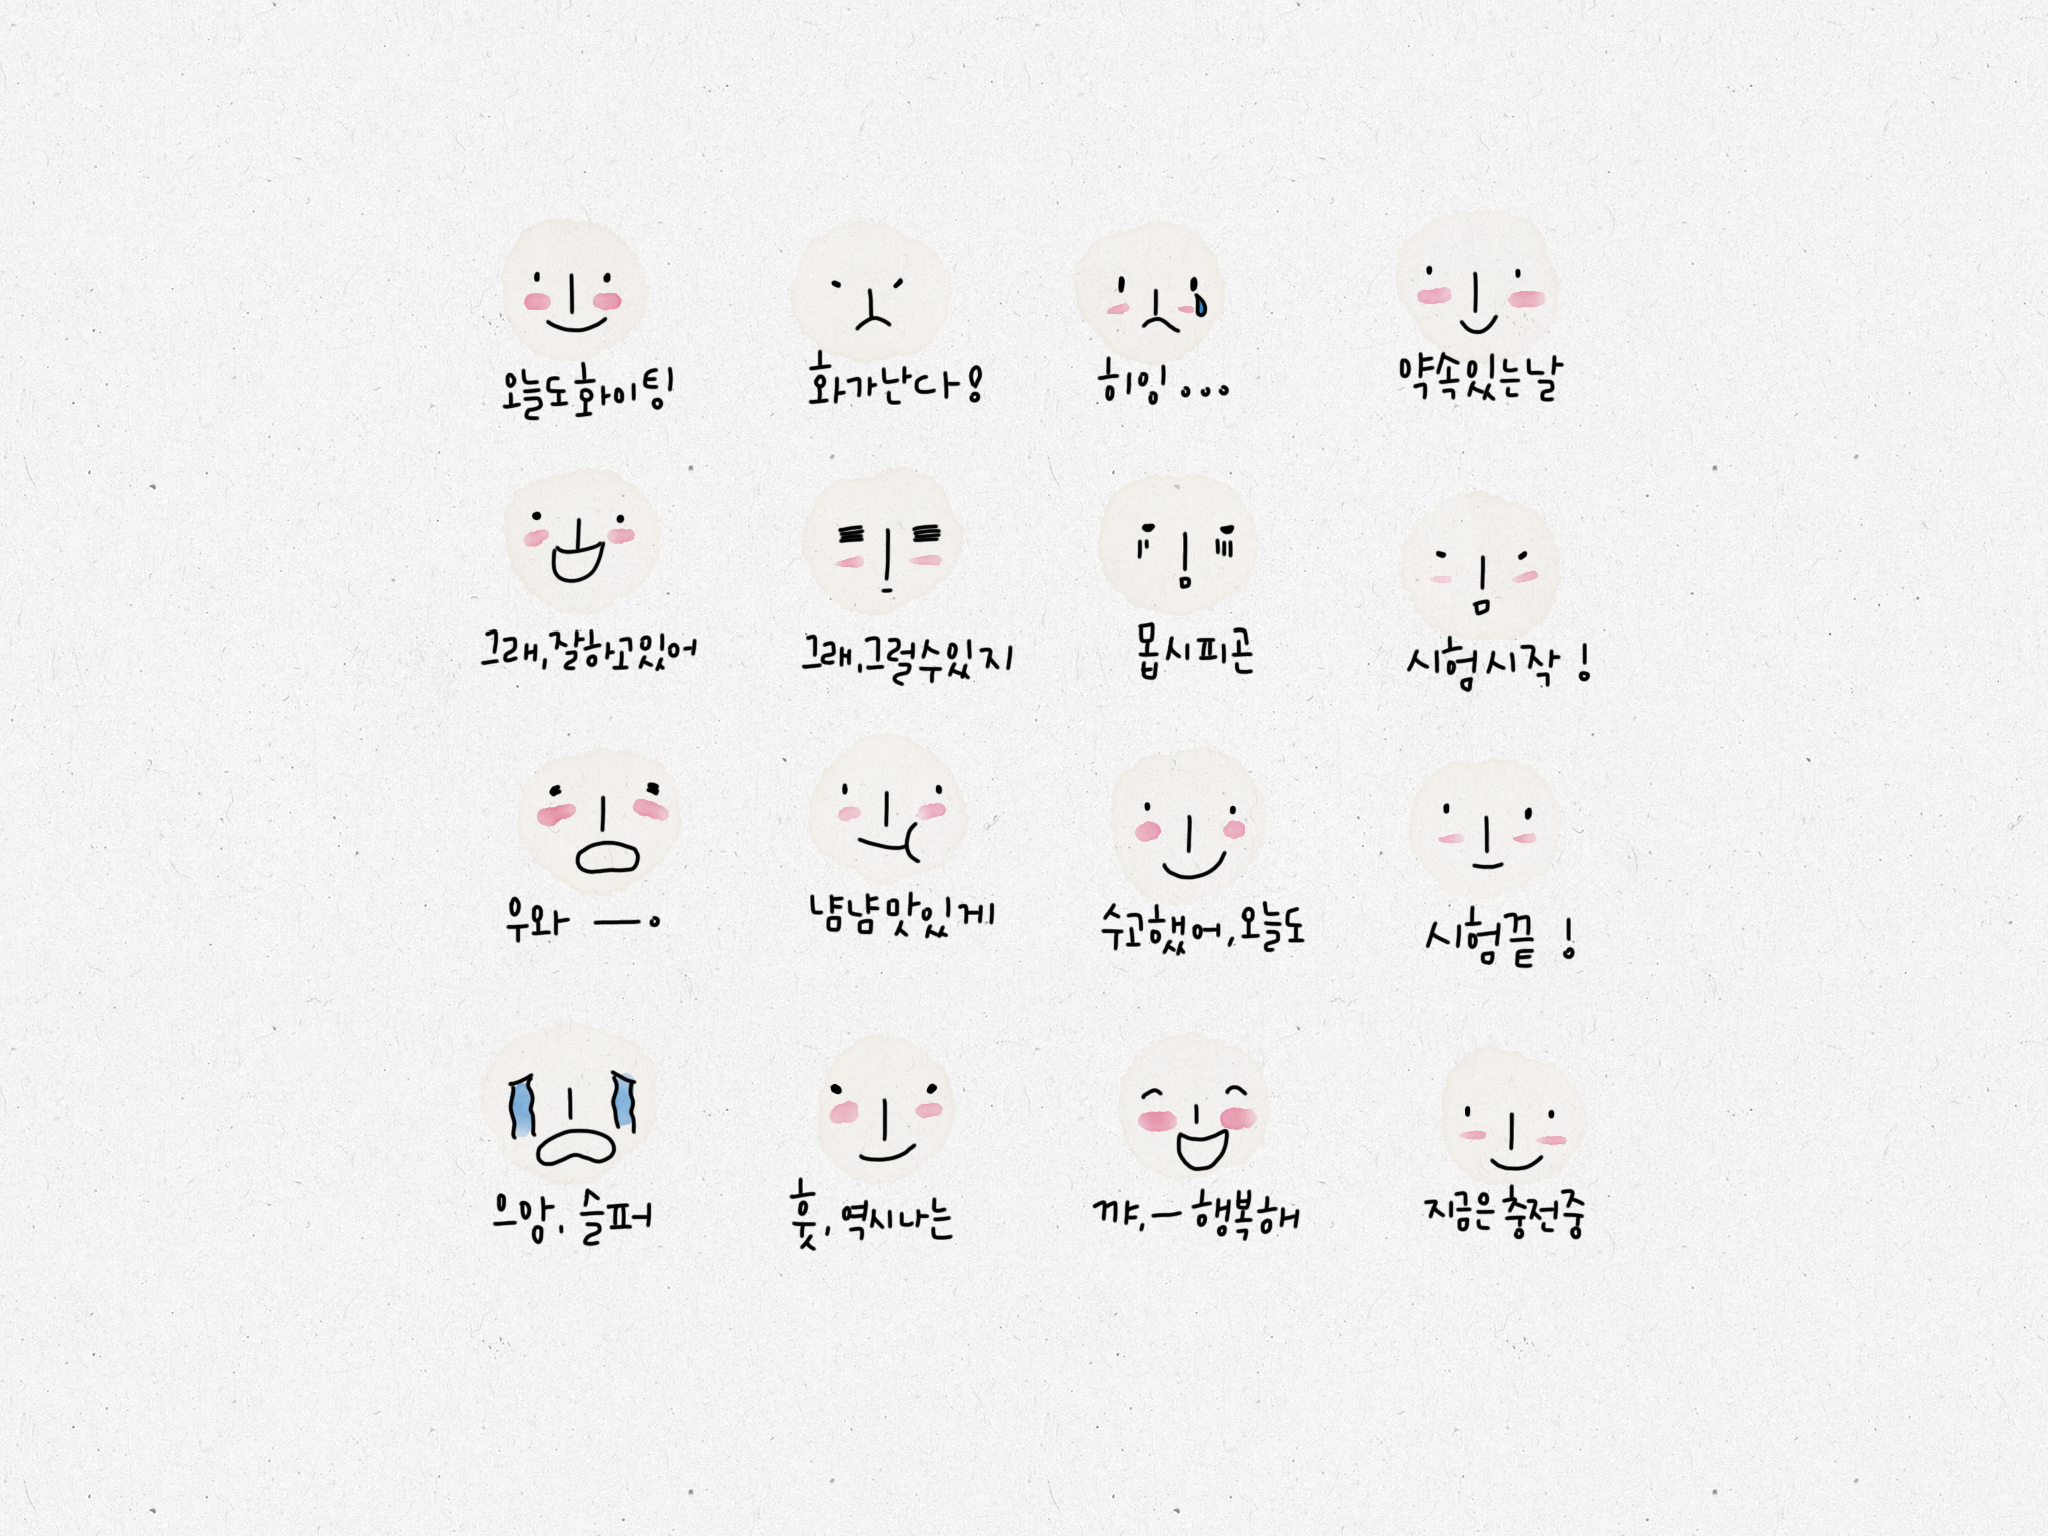 오늘도화이팅
화가난다!
히잉...
약속있는날
그래,잘하고있어
그래,그럴수있지
몹시피곤
시험시작!
우와 —.
냠냠맛있게
수고했어,오늘도
시험끝 !
으앙, 슬퍼
훗, 역시나는
꺄,— 행복해
지금은충전중